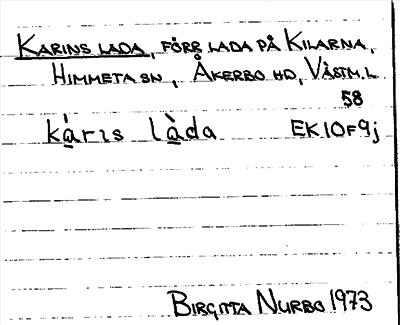 KARINS LADA, FÖRR LADA PÅ KILARNA,
HIMMETA SN, ÅKERBO HD, VÄSTM. L
58
kàris làda EK10F9j
BIRGITTA NURBO 1973